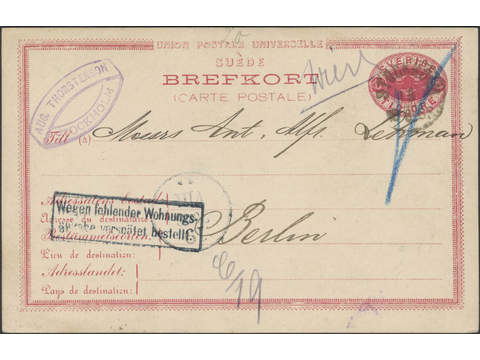 UNION POSTALE UNIVERSELLE
SUÈDE
BREFKORT
(CARTE POSTALE)
SVERIGE
TIO ÖRE
AUG. THORSTENSON
STOCKHOLM
Till (à) Messrs Ant, Alf. Lehman
Adressatens bostad
Adresse du destinataire
Wegen fehlender Wohnungs-
angabe verspätet bestellt.
Bestämmelseorten:
Berlin
Lieu de destination:
Adresslandet:
Pays de destination:
19